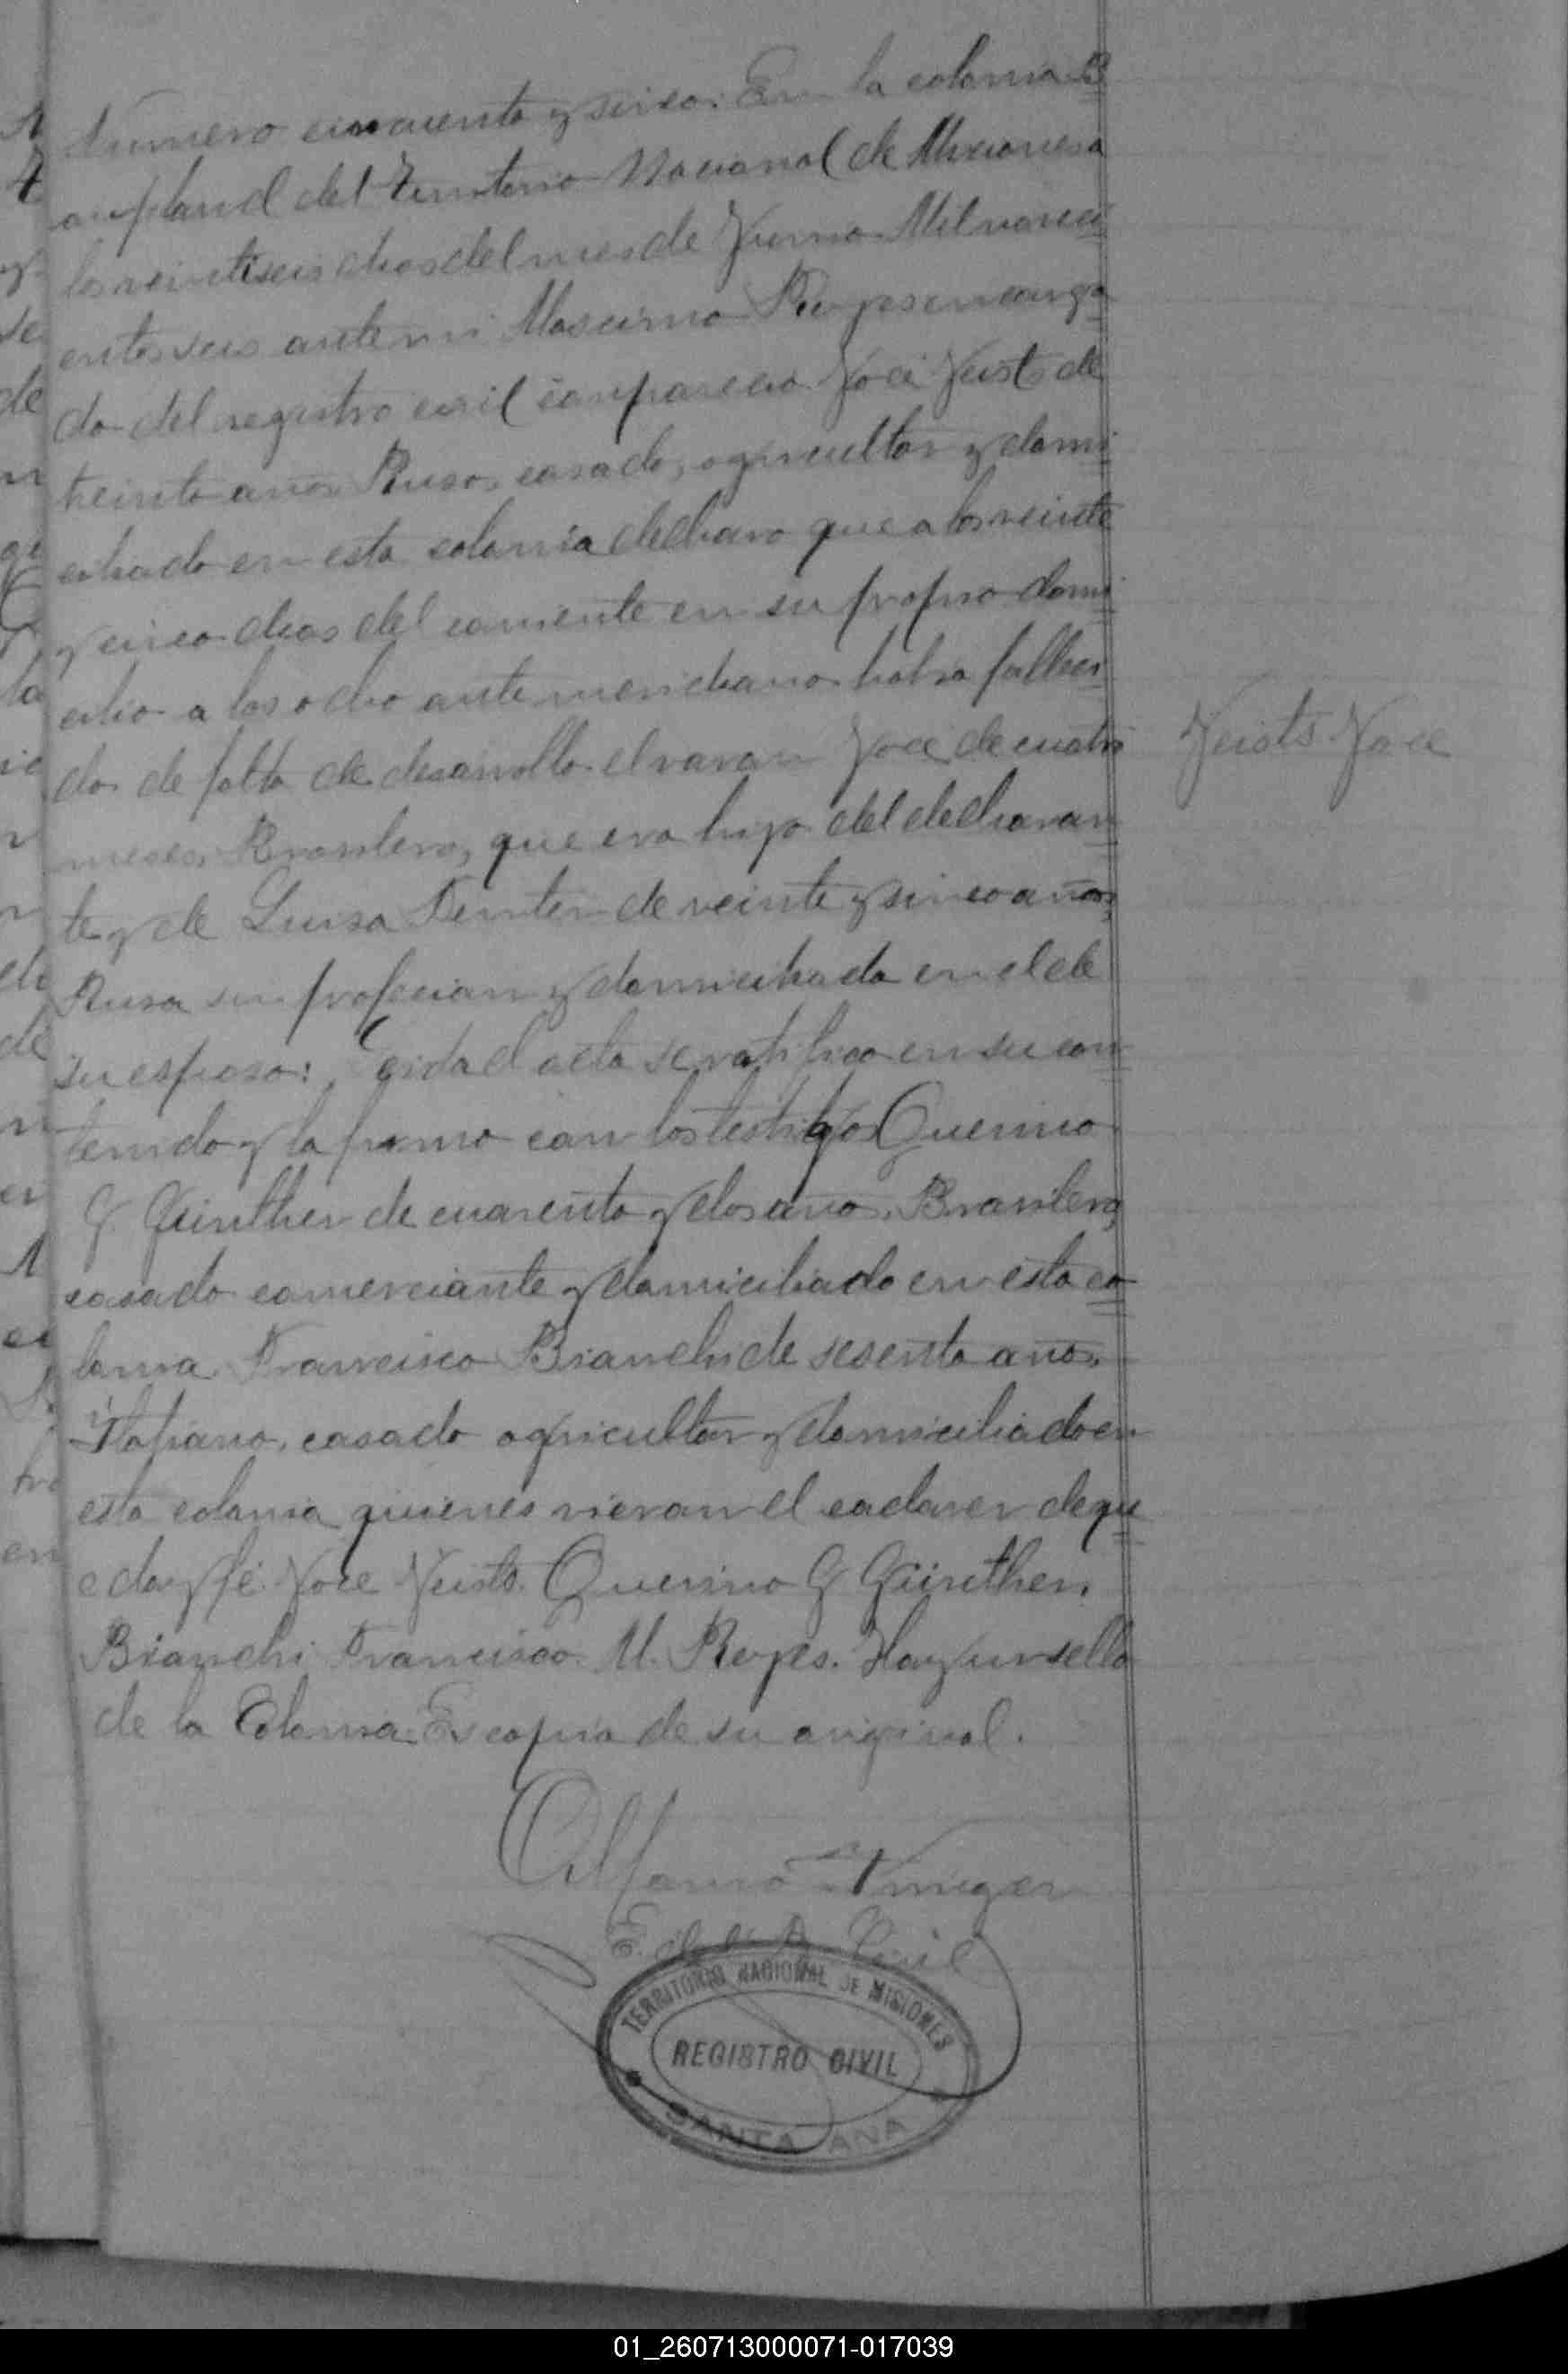 Numero cincuenta y sinco. En la colonia B
anpland del Territorio Nacional de Miciones a
los veintiseis dias del mes de Junio Mil noveci
entos seis ante mi Macimo Reyes encarga
do del registro civil conparecio Joce Justs de
treinta años Ruso, casado, agricultor y domi
ciliado en esta colonia declaro que a los veinte
y cinco dias del corriente en su propio domi
cilio a las ocho ante meridiano habia falleci
do de falta de desarrollo el varon Joce de cuatro
meses Brasilero, que era hijo del declaran
te y de Luisa de veinte y sinco años,
Rusa sin profecion y domiciliada en el de
su esposo: acta se ratifico en su con
tenido y la firmo con los testigos Querino
G. Günther de cuarenta y dos años, Brasilero,
casado comerciante y domiciliado en esta co
lonia Francisco Bianchi de sesenta años,
Italiano, casado agricultor y domiciliado en
esta colonia quienes vieron el cadaver de qu
e doy fé Joce Justs. Querino G Günther.
Bianchi Francisco. M. Reyes. Hay un sello
de la Colonia Es copia de su original.
Justs Joce
Alfonso
E. de l R. Civil
TERRITORIO NACIONAL DE MISIONES
REGISTRO CIVIL
SANTA ANA
01_260713000071-017039